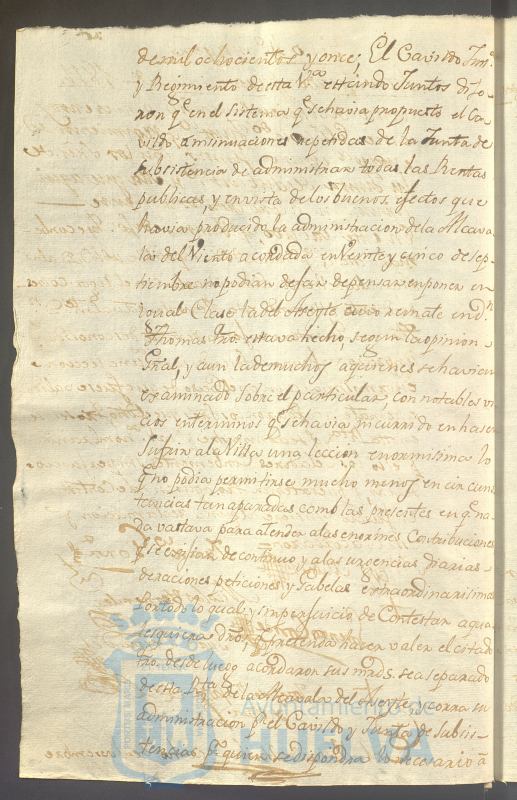 de mil ochocientos y once; El Cavildo Just.ª
y Regimiento de esta V.ª estando Juntos dixe-
ron q.e en el sistema q.e se havia propuesto el Ca-
vildo a insinuaciones repetidas de la Junta de
Subsistencia de administrar todas las Rentas
publicas, y en vista de los buenos efectos que
havia producido la administracion de la Alcava-
la del Viento acordada en Veinte y cinco de sep-
tiembre no podian dejar de pensar en poner en
igual Clase la del Aseyte cuio remate en D.n
Thomas estava hecho, segun la opinion
Gral, y aun la de muchos a quienes se havian
examinado sobre el particular, con notables vi-
cios en terminos q.e se havia incurrido en haser
Sufrir a la Villa una leccion enormisima lo
q.e no podia permitirse mucho menos en circuns-
tancias tan apuradas como las presentes en q.e na-
da vastava para atender a las enormes Contribuciones
q.e se exijian de continuo y a las urgencias diarias
de raciones peticiones y Gabelas extraordinarisimas
Por todo lo qual y sin perjuicio de Contestar a qua-
lesquiera dro, q.e pretenda haver valer el citado
desde luego acordaron sus mrds. sea separado
de esta Rta de la Alcavala del Aseyte y corra su
administracion p.r el Cavildo y Junta de Subsis-
tencias p.r quien se dispondra lo necesario a
Ayuntamiento de
HUELVA